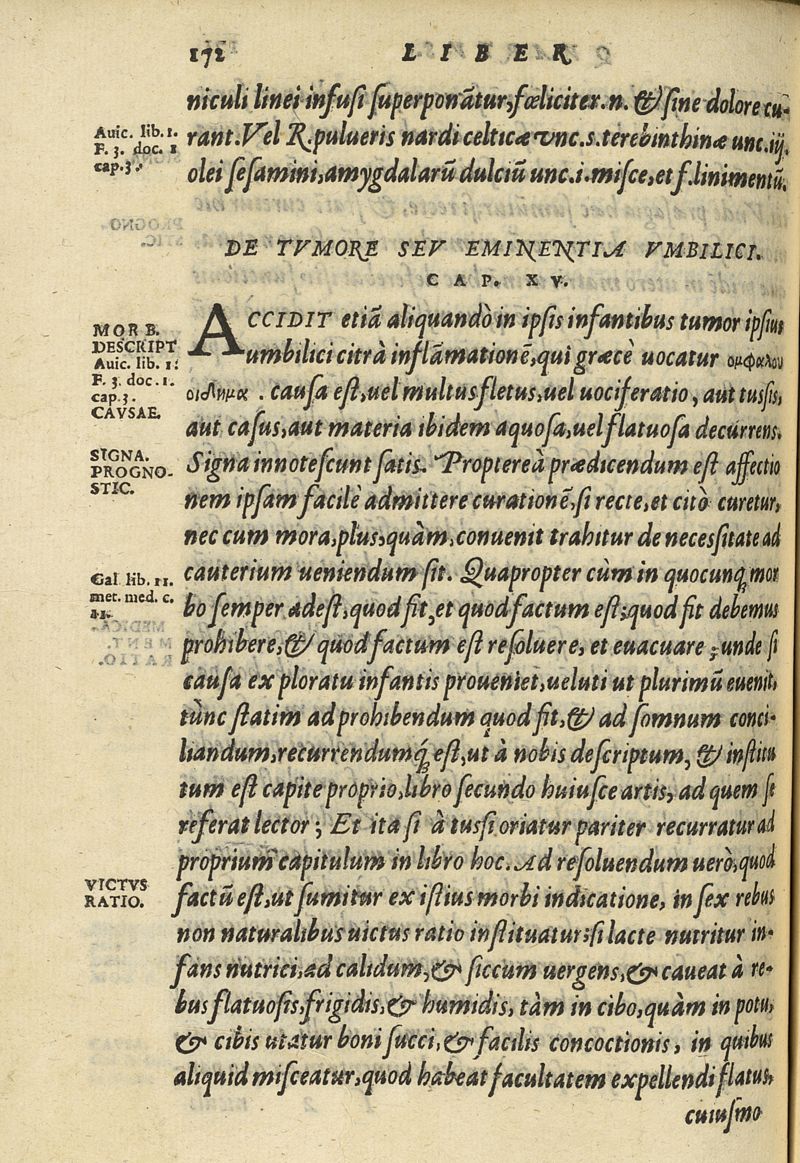 172 LIBER
niculi linei infusi superponãtur, fœliciter.n. & sine dolore cu-
Avic. lib. 1. rant. Vel ℞. pulueris nardi celticæ vnc.s. terebinthinæ unc.iij.
F. 3. doc. 1
cap. 3. olei sesamini, amygdalarũ dulciũ unc.i. misce, et f. linimentũ.
DE TVMORE SEV EMINENTIA VMBILICI.
CAP. XV.
MORB.
DESCRIPT
Avic. lib. 1.
F. 3. doc. 1.
cap. 3.
CAVSAE.
ACCIDIT etiã aliquandò in ipsis infantibus tumor ipsius
umbilici citrà inflãmationẽ, qui græcè uocatur ομφαλου
οιδημα . causa est, uel multus fletus, uel uociferatio, aut tussis,
aut casus, aut materia ibidem aquosa, uel flatuosa decurrens.
SIGNA.
PROGNO-
STIC.
Signa innotescunt satis. Proptereà prædicendum est affectio
nem ipsam facilè admittere curationẽ, si recte, et citò curetur,
nec cum mora, plus, quàm, conuenit trahitur de necessitate ad
Gal lib. 11.
met. med. c.
11.
cauterium ueniendum sit. Quapropter cùm in quocunq; mor
bo semper adest, quod fit, et quod factum est; quod fit debemus
prohibere, & quod factum est resoluere, et euacuare; unde si
causa ex ploratu infantis proueniet, ueluti ut plurimũ euenit,
tùnc statim ad prohibendum quod fit, & ad somnum conci-
liandum, recurrendumq́; est, ut à nobis descriptum, & institu
tum est capite proprio, libro secundo huiusce artis, ad quem se
referat lector; Et ita si à tussi oriatur pariter recurratur ad
proprium capitulum in libro hoc. Ad resoluendum uerò, quod
VICTVS
RATIO.
factũ est, ut sumitur ex istius morbi indicatione, in sex rebus
non naturalibus uictus ratio instituatur: si lacte nutritur in-
fans nutrici, ad calidum, & siccum uergens, & caueat à re-
bus flatuosis, frigidis, & humidis, tàm in cibo, quàm in potu,
& cibis utatur boni succi, & facilis concoctionis, in quibus
aliquid misceatur, quod habeat facultatem expellendi flatus,
cuiusmo